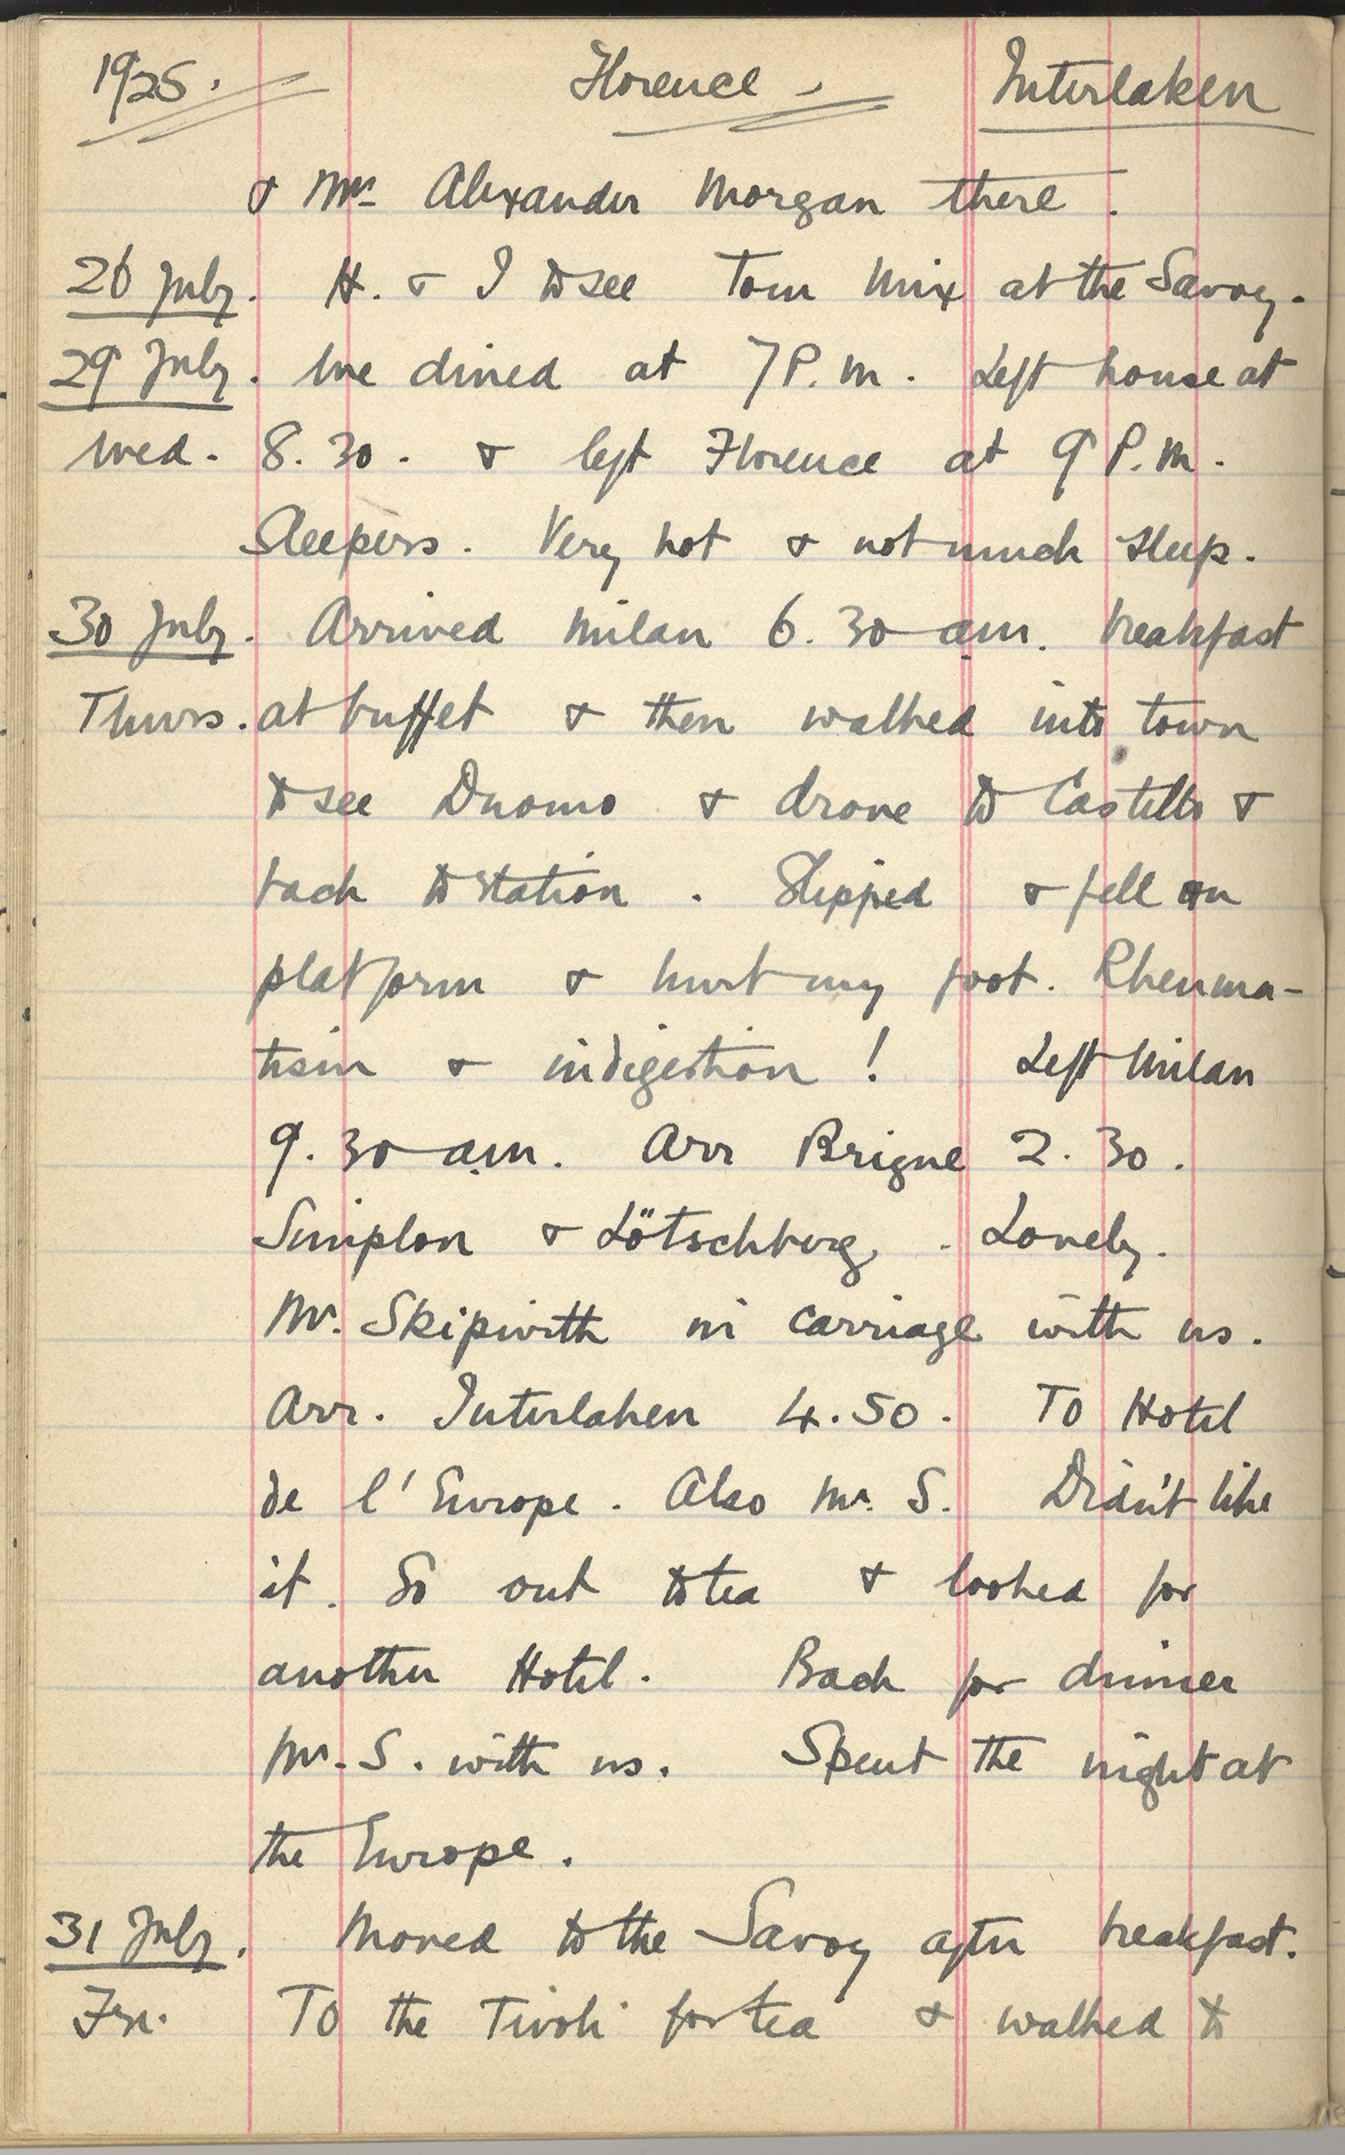 1925. Florence - Interlaken
& Mrs Alexander Morgan there.
26 July. H. & I to see Tom Mix at the Savoy.
29 July. We dined at 7 P.M. Left house at
Wed. 8.30. & left Florence at 9 P.M.
Sleepers. Very hot & not much sleep.
30 July. Arrived Milan 6.30 am. breakfast
Thurs. at buffet & then walked into town
to see Duomo & drove to Castello &
back to station. Slipped & fell on
platform & hurt my foot. Rheuma-
tism & indigestion! Left Milan
9.30 am. Arr Brigue 2.30.
Simplon & Lötschberg. Lovely.
Mr. Skipwith in carriage with us.
Arr. Interlaken 4.50. To Hotel
de l'Europe. Also Mr. S. Didn't like
it. So out to tea & looked for
another Hotel. Back for dinner
Mr. S. with us. Spent the night at
the Europe.
31 July. Moved to the Savoy after breakfast.
Fri. To the Tivoli for tea & walked to